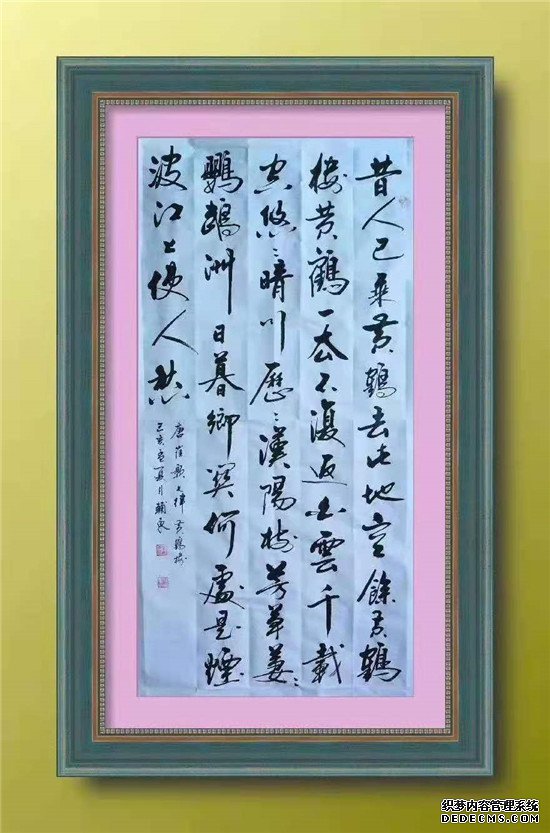 昔人已乘黄鶴去此地空餘黄鶴
楼黄鶴一去不復返白雲千載
空悠々晴川歷々漢陽树芳草萋々
鸚鵡洲日暮鄉関何處是煙
波江上使人愁
唐崔颢七律黄鶴楼
己亥夏月
织梦内容管理系统
DEDECMS.COM